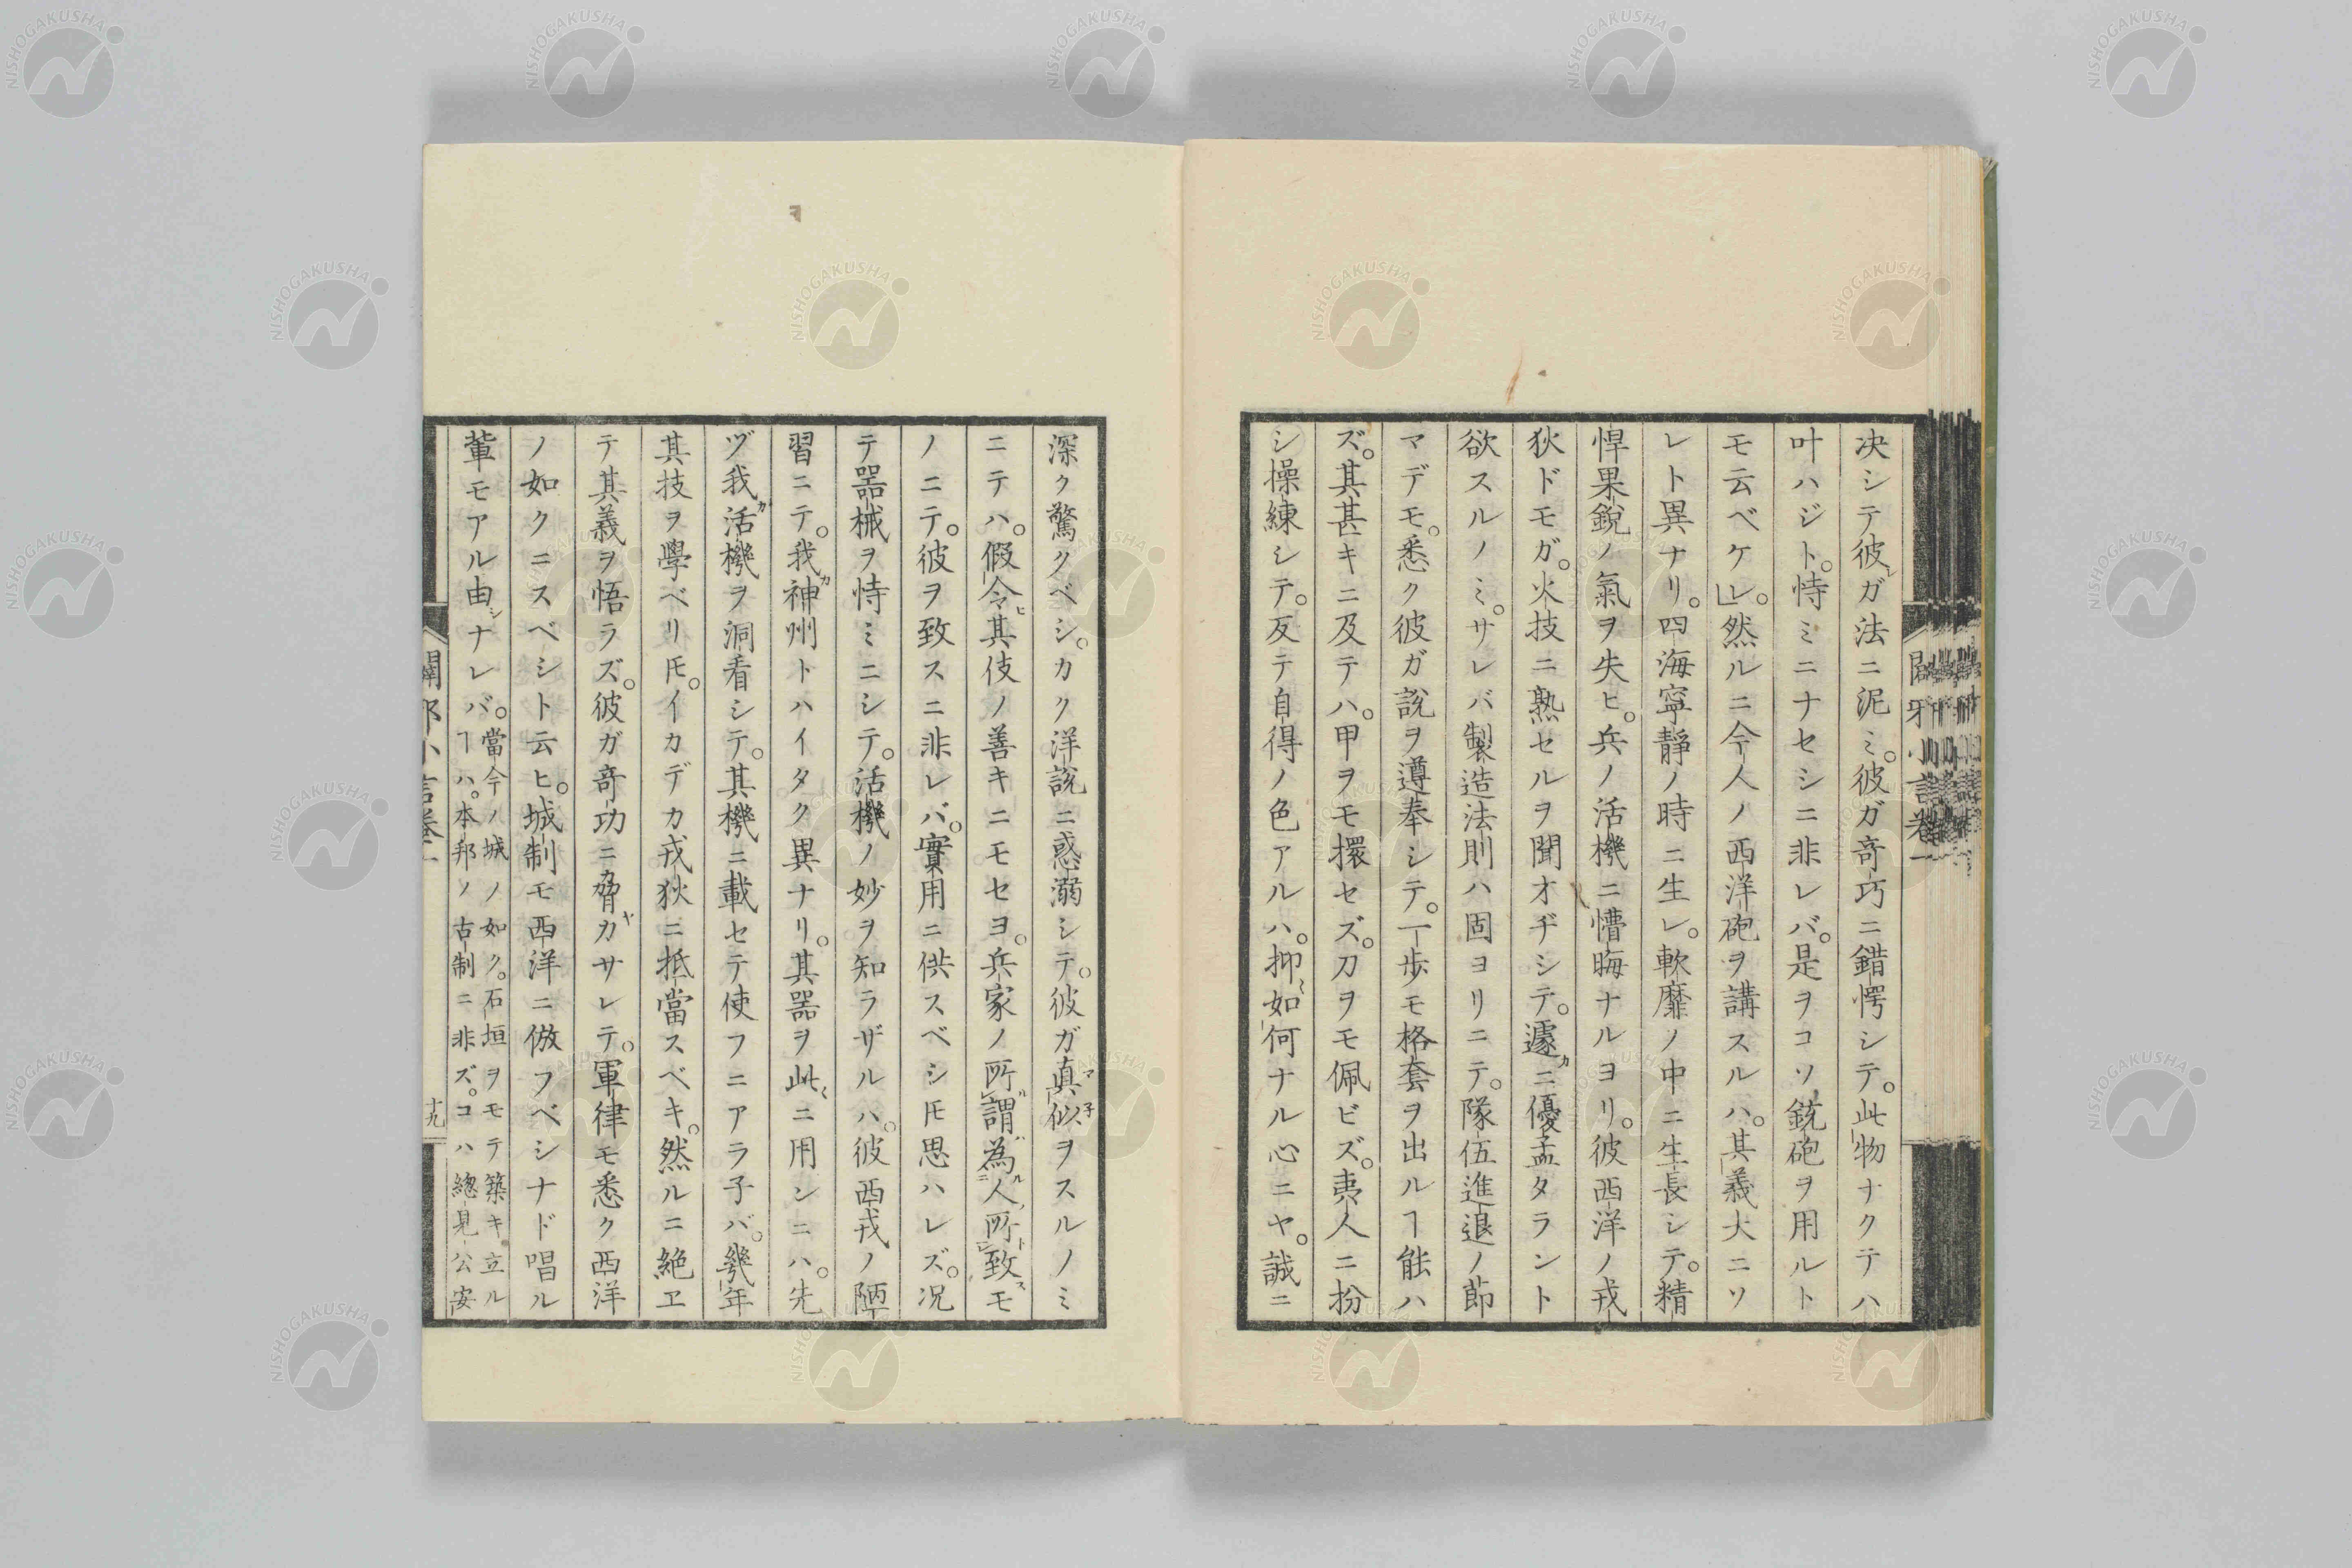 决シテ彼レガ法ニ泥ミ。彼ガ奇巧ニ錯愕シテ。此物ナクテハ
叶ハジト。恃ミニナセシニ非レバ。是ヲコソ銃砲ヲ用ルト
モ云ベケレ。然ルニ今人ノ西洋砲ヲ講スルハ。其義大ニソ
レト異ナリ。四海寧靜ノ時ニ生レ。軟靡ノ中ニ生長シテ。精
悍果銳ノ氣ヲ失ヒ。兵ノ活機ニ懵晦ナルヨリ。彼西洋ノ戎
狄ドモガ。火技ニ熟セルヲ聞オヂシテ。遽カニ優孟タラント
欲スルノミ。サレバ製造法則ハ固ヨリニテ。隊伍進退ノ節
マデモ。悉ク彼ガ說ヲ遵奉シテ。一歩モ格套ヲ出ルヿ能ハ
ズ。其甚キニ及テハ。甲ヲモ擐セズ。刀ヲモ佩ビズ。夷人ニ扮
シ操練シテ。反テ自得ノ色アルハ。抑ミ如何ナル心ニヤ。誠ニ
深ク驚クベシ。カク洋說ニ惑溺シテ。彼ガ真マ似子ヲスルノミ
ニテハ。假令ヒ其伎ノ善キニモセヨ。兵家ノ所謂為人所致モ
ノニテ。彼ヲ致スニ非レバ。實用ニ供スベシ𪜈思ハレズ。况
テ器械ヲ恃ミニシテ。活機ノ妙ヲ知ラザルハ。彼西戎ノ陋
習ニテ。我カ神州トハイタク異ナリ。其器ヲ此ニ用ンニハ。先
ヅ我カ活機ヲ洞看シテ。其機ニ載セテ使フニアラ子バ。幾年
其技ヲ學ベリ𪜈。イカデカ戎狄ニ抵當スベキ。然ルニ絕エ
テ其義ヲ悟ラズ。彼ガ奇功ニ脅カサレテ。軍律モ悉ク西洋
ノ如クニスベシト云ヒ。城制モ西洋ニ倣フベシナド唱ル
輩モアル由シナレバ。當今ノ城ノ如ク。石垣ヲモテ築キ立ル
ヿハ。本邦ノ古制ニ非ズ。コハ總見公安
十九